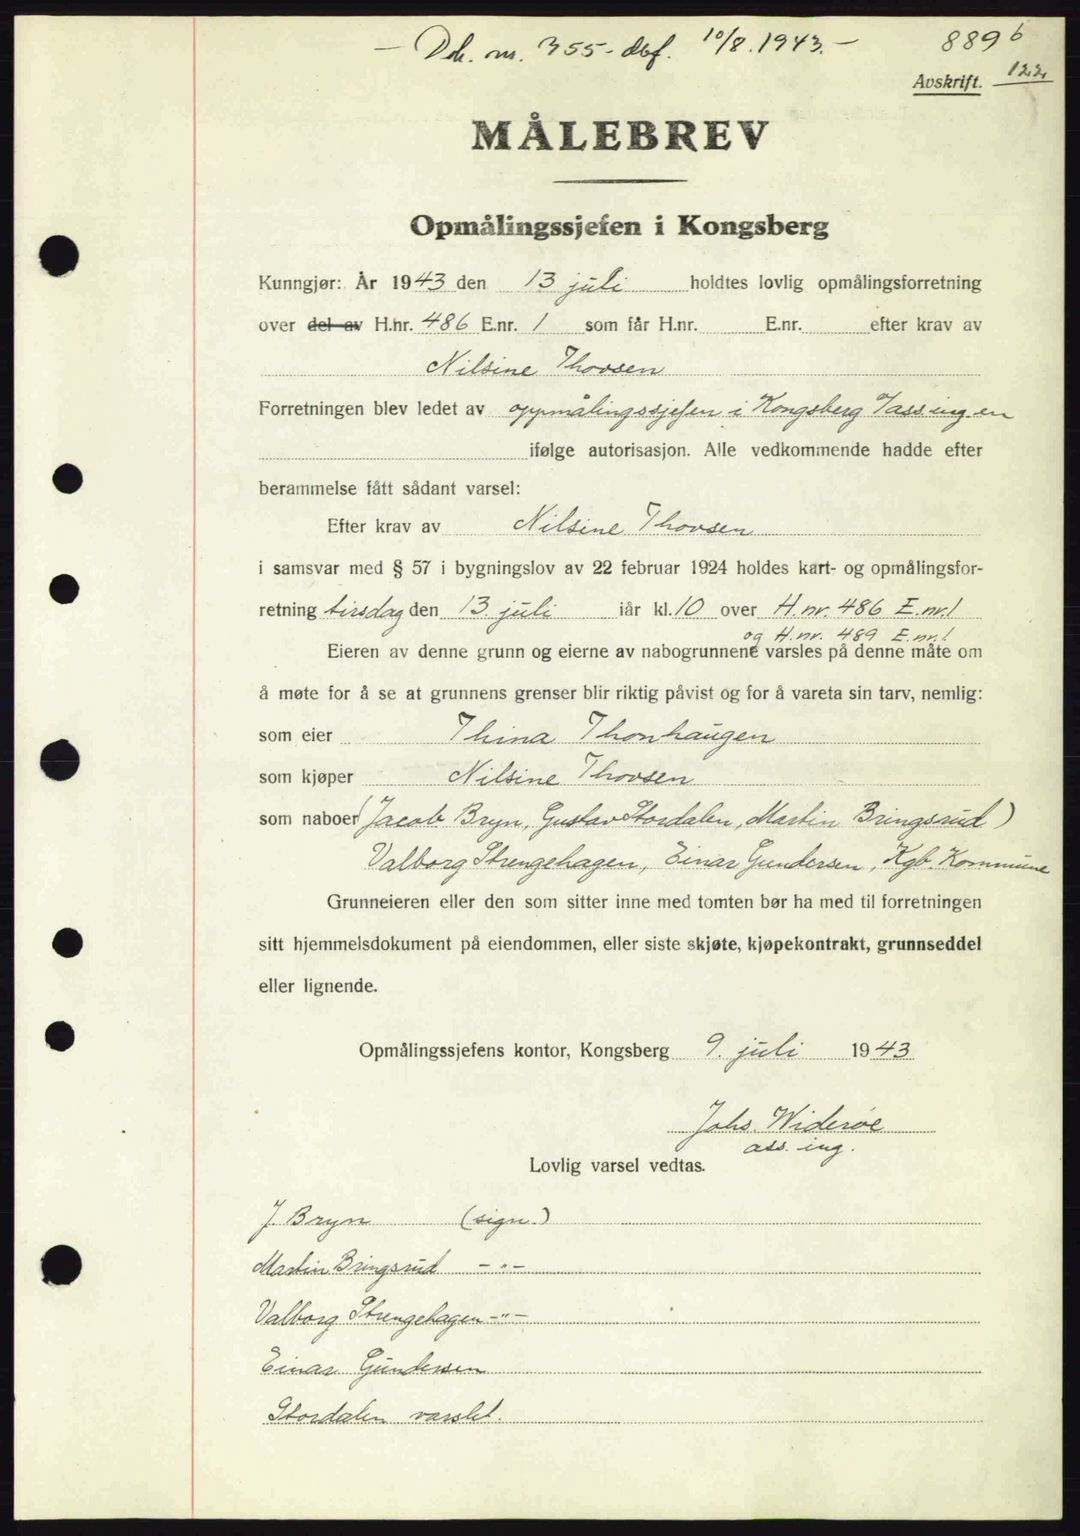 — Dok. nr. 355 - dbf. 10/8. 1943. — 889 b
Avskrift. 122
MÅLEBREV
Opmålingssjefen i Kongsberg
Kunngjør: År 1943 den 13 juli holdtes lovlig opmålingsforretning
over del av H.nr. 486 E.nr. 1 som får H.nr. E.nr. efter krav av
Nilsine Thovsen
Forretningen blev ledet av oppmålingssjefen i Kongsberg v/ass.ing. en
ifølge autorisasjon. Alle vedkommende hadde efter
berammelse fått sådant varsel:
Efter krav av Nilsine Thovsen
i samsvar med § 57 i bygningslov av 22 februar 1924 holdes kart- og opmålingsfor-
retning tirsdag den 13. juli iår kl. 10 over H.nr. 486 E.nr. 1
og H.nr. 489 E.nr. 1
Eieren av denne grunn og eierne av nabogrunnene varsles på denne måte om
å møte for å se at grunnens grenser blir riktig påvist og for å vareta sin tarv, nemlig:
som eier Thina Thonhaugen
som kjøper Nilsine Thovsen
som naboer (Jacob Bryn, Gustav Stordalen, Martin Bringsrud)
Valborg Strengehagen, Einar Gundersen, Kgb. Kommune
Grunneieren eller den som sitter inne med tomten bør ha med til forretningen
sitt hjemmelsdokument på eiendommen, eller siste skjøte, kjøpekontrakt, grunnseddel
eller lignende.
Opmålingssjefens kontor, Kongsberg 9. juli 1943
Johs. Widerøe
ass. ing.
Lovlig varsel vedtas.
J. Bryn (sign.)
Martin Bringsrud -"-
Valborg Strengehagen -"-
Einar Gundersen
Stordalen varslet.